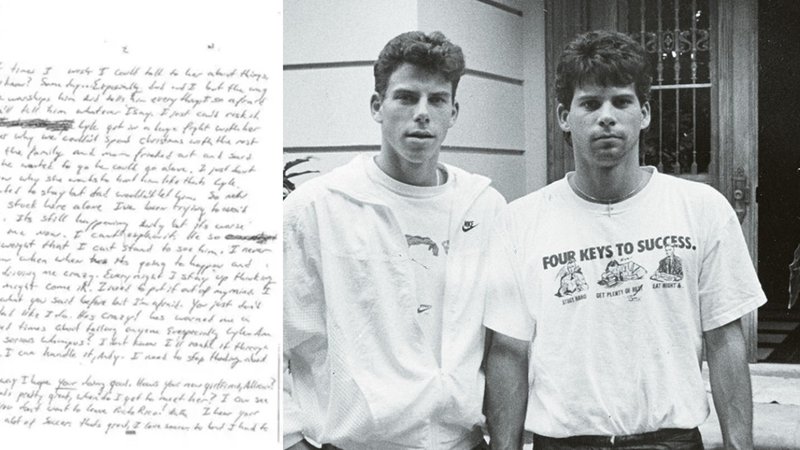 2
times I wish I could talk to her about things,
know? Some day. Especially dad and I but the way
worships him and tells him everything I so afraid
tell him whatever I say. I just can't risk it.
Lyle got in a huge fight with her
why we couldn't spend Christmas with the rest
the family and mom freaked out and said
he wanted to go he could go alone. I just don't
why she wants to hurt him like that. Lyle
to stay but dad wouldn't let him. So now
stuck here alone I've been trying to avoid
Its still happening Andy but its worse
me now. I can't explain it. He so
weight that I can't stand to see him. I never
when its going to happen and
driving me crazy. Every night I stay up thinking
might come in. I need to put it out of my mind. I
what you said before but I'm afraid. You just don't
dad like I do. He's crazy! has warned me
times about telling anyone Especially Lyle. Am
serious whimpus? I dont know I'll make it through
I can handle it, Andy. I need to stop thinking about
way I hope your doing good. Hows your new girlfriend, Allison?
pretty great, when do I get to meet her? I can see
you dont want to leave Puerto Rico! I hear your
a lot of soccer thats great, I love soccer to but I had to
NIKE
FOUR KEYS TO SUCCESS.
GET PLENTY OF REST